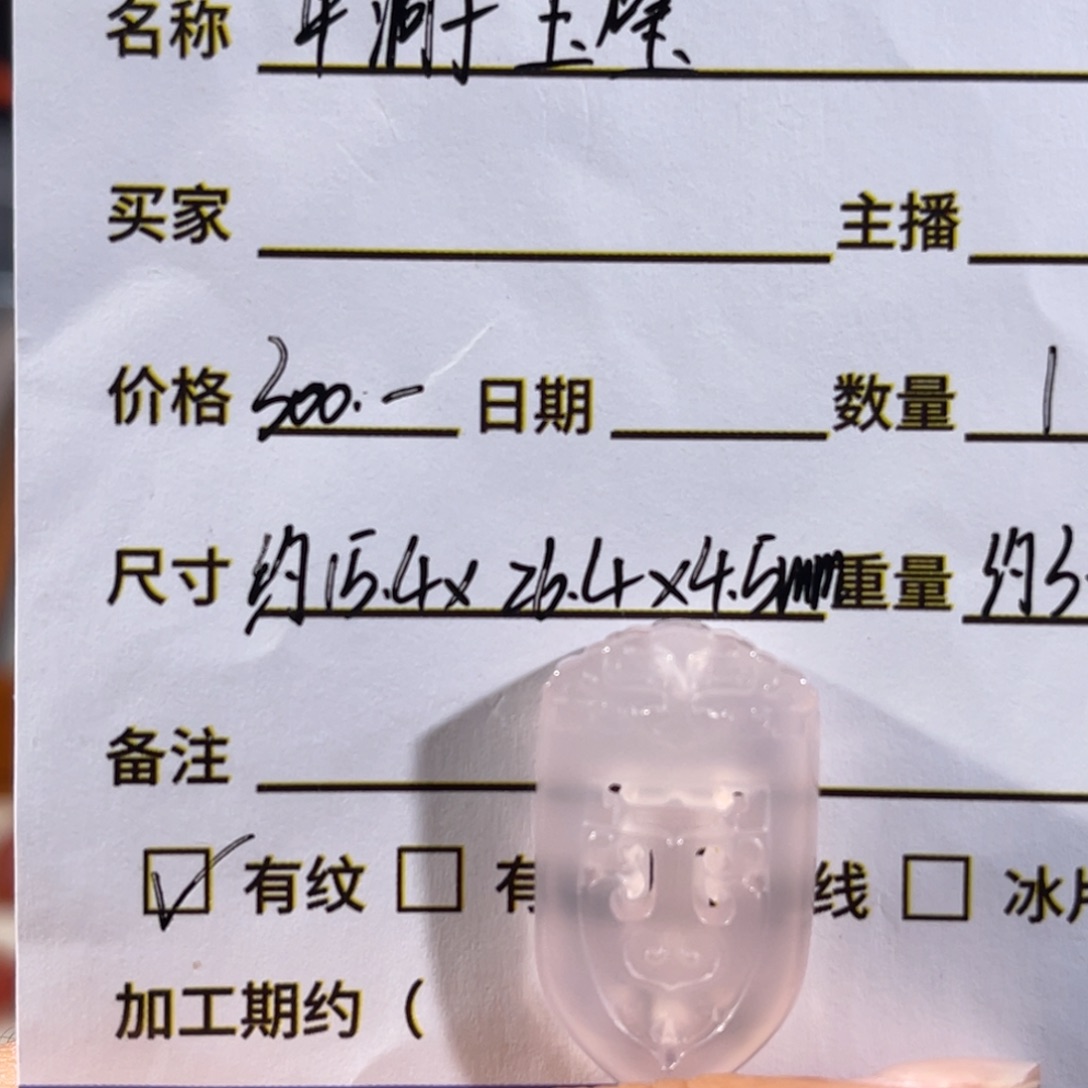 名称 平洞子玉髓
买家 主播
价格 300.- 日期 数量 1
尺寸 约15.4x26.4x4.5mm 重量 约3.
备注
有纹 有 线 冰片
加工期约（